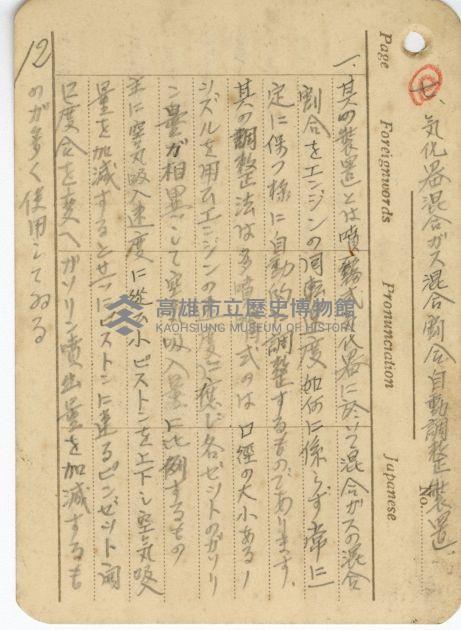 七、気化器混合ガス混合割合自動調整装置
Page Foreignwords Pronunciation Japanese
No.
一、其の装置とは噴霧式気化器に於いて混合ガスの混合
割合をエンジンの回転速度如何に係らず常に一
定に保つ様に自動的に調整するものであります。
其の調整法は多噴口式のは口径の大小あるノ
ズルを用ひエンジンの速度に應じ各ゼットのガソリ
ン量が相異して空気吸入量に比例するもの
主に空気吸入速度に從ひ小ピストンを上下し空気吸
量を加減すると共にピストンに連るピンゼット
口度合を変へガソリン費出量を加減するも
のが多く使用してゐる
12
高雄市立歷史博物館
KAOHSIUNG MUSEUM OF HISTORY